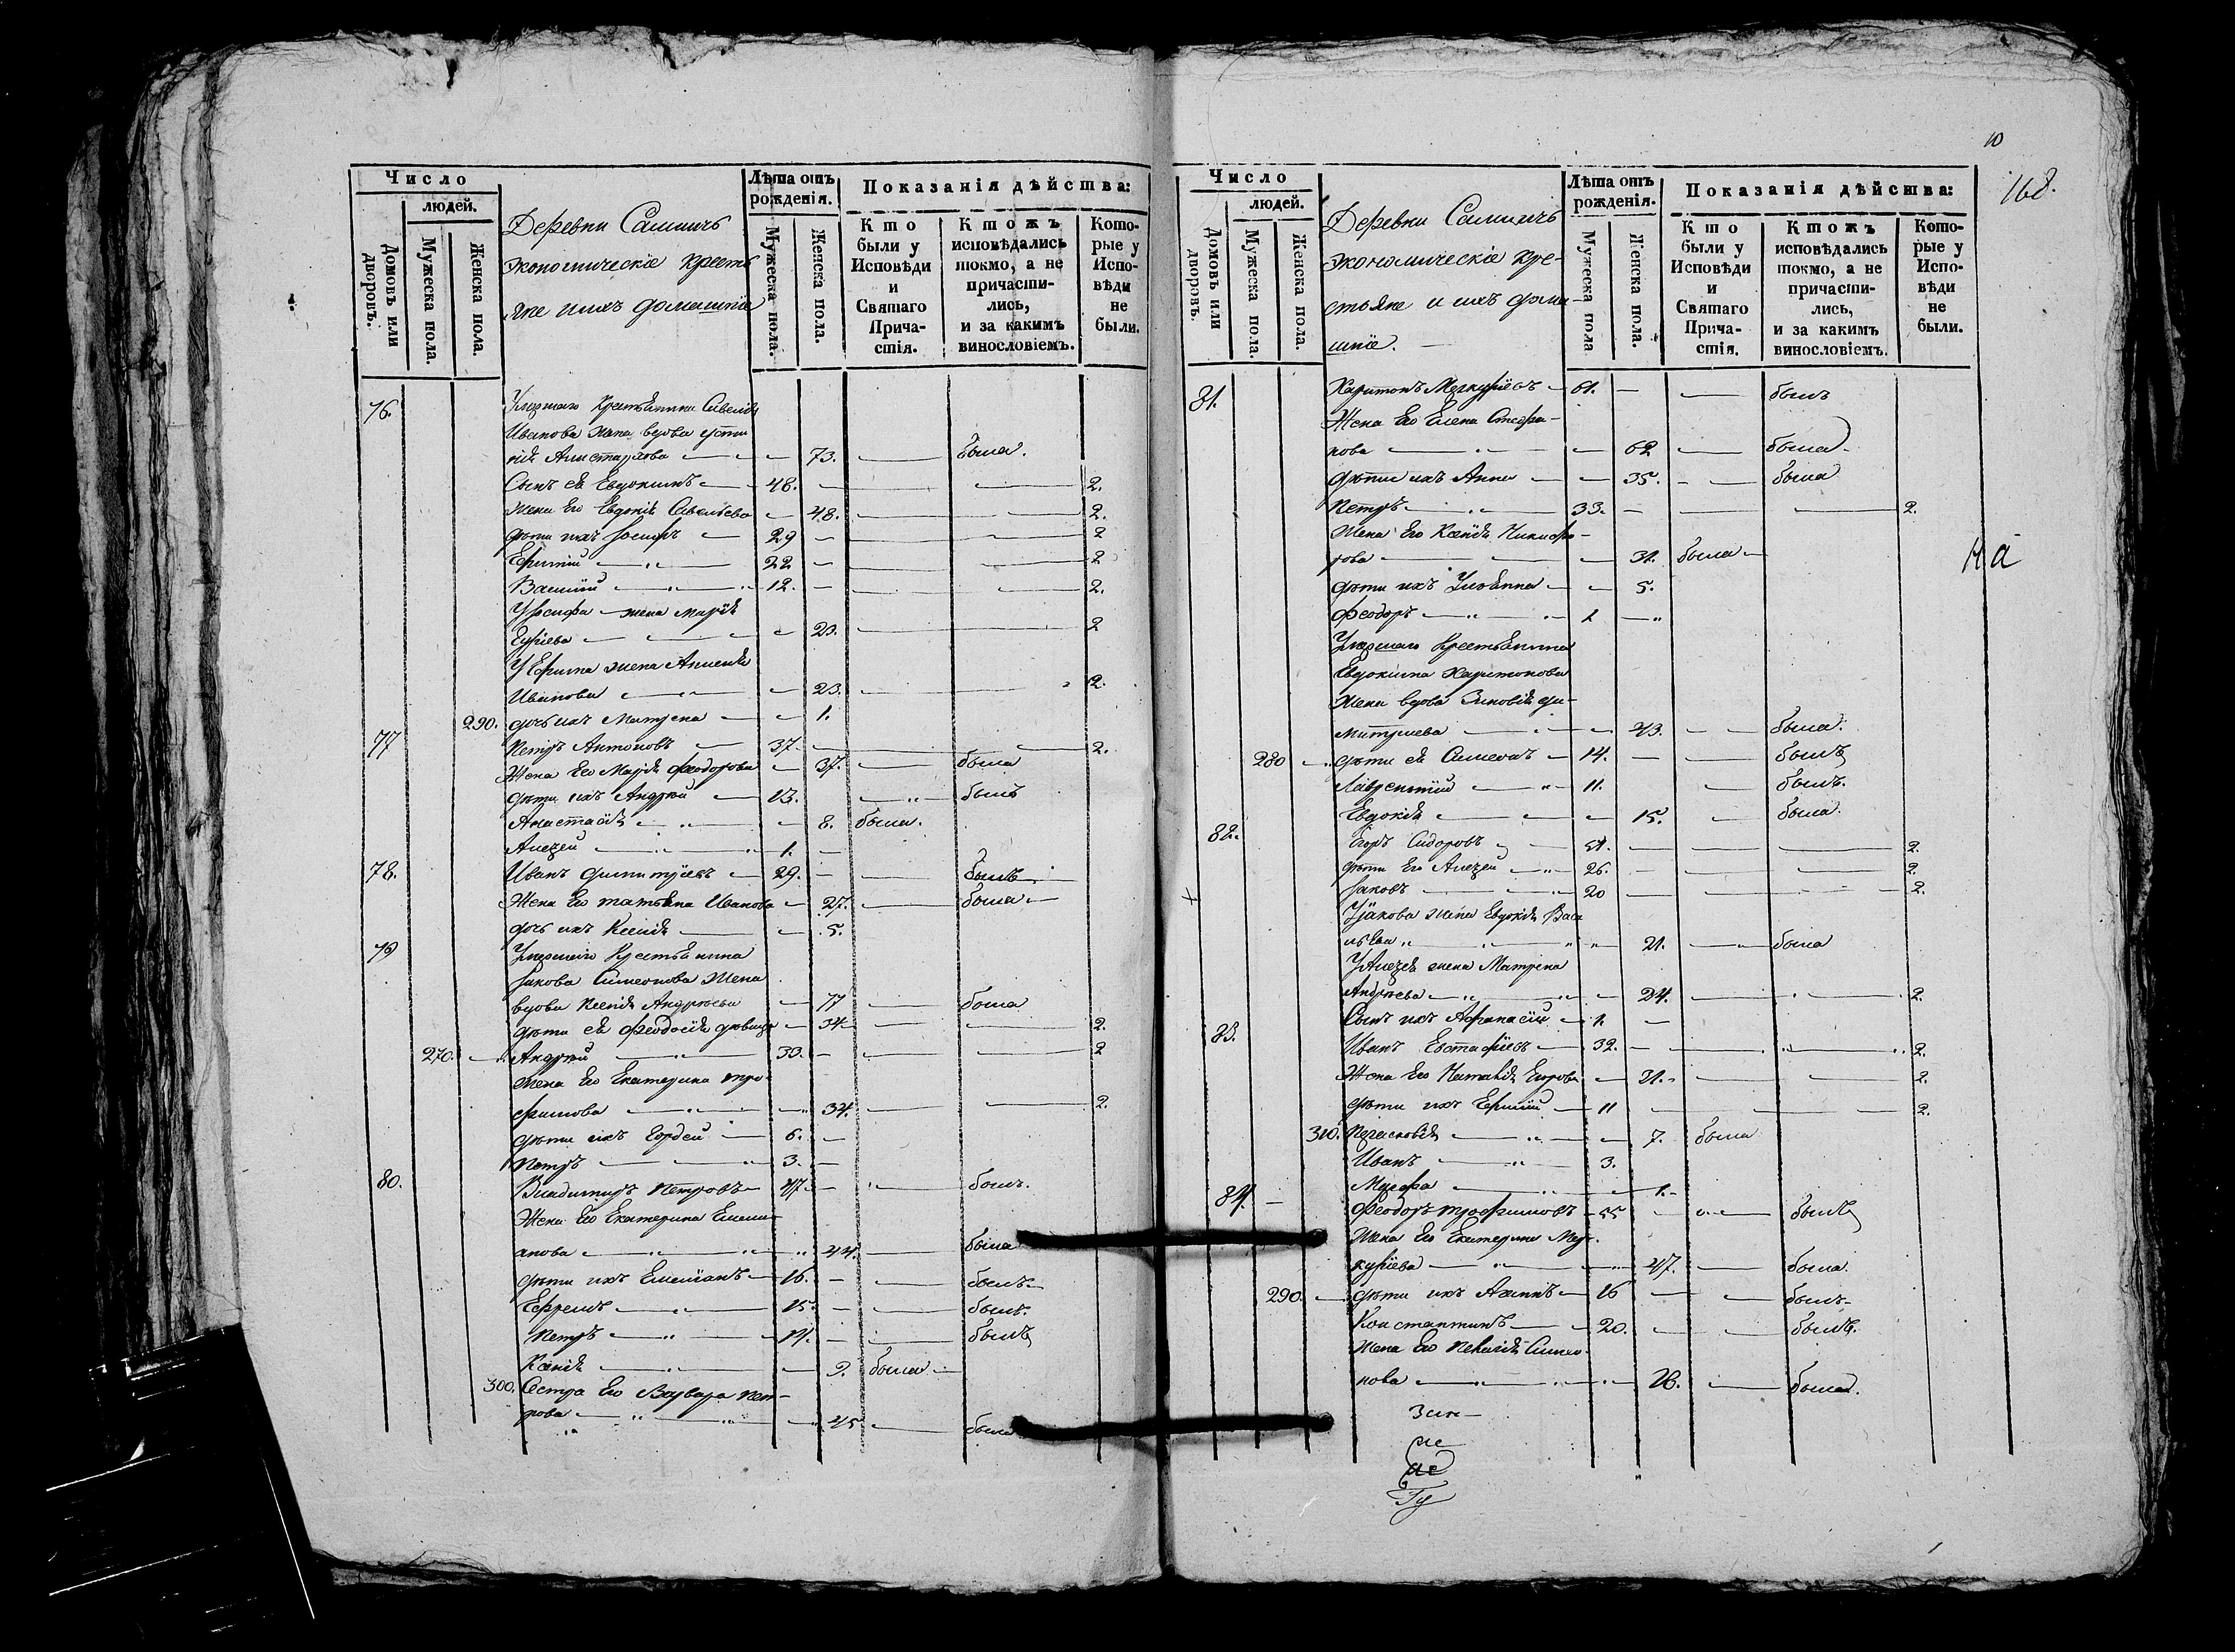 Число
людей.
Домовъ или дворовъ.
Мужеска пола.
Женска пола.
Деревни Самылъ
экономическіе кресть
яне и ихъ домашніе
Лѣта отъ рожденія.
Мужеска пола.
Женска пола.
Показанія дѣйства:
Кто были у Исповѣди и Святаго Причастія.
Ктожъ исповѣдались токмо, а не причастились, и за какимъ винословіемъ.
Которые у Исповѣди не были.
76. Умершаго крестьянина Савелія
Иванова жена вдова Усти
нія Алистархова 73. была.
Сынъ ея Евдокимъ 48. 2.
Жена его Евдокія Савельева 48. 2.
дѣти ихъ Іосифъ 29 2
Ефимій 22 2
Василій 12. 2.
У Іосифа жена Марія
Егриева 23. 2
У Ефима жена Аксенія
Иванова 23. 2.
290. дочь ихъ Матрена 1.
77 Петръ Антоновъ 37. 2.
Жена его Марія Феодорова 37. была
дѣти ихъ Андрей 13. былъ
Анастасія 8. была.
Алезей 1.
78. Иванъ Димитріевъ 29. былъ
Жена его Татьяна Иванова 27. была
дочь ихъ Ксенія 5.
79 Умершаго крестьянина
Іакова Симеонова жена
вдова Ксенія Андреева 77 была
дѣти ея Феодосія дѣвица 34 2.
270. Андрей 30. 2
Жена его Екатерина Тро
фимова 34. 2.
дѣти ихъ Гордей 6.
Петръ 3.
80. Владимиръ Петровъ 47. былъ.
Жена его Екатерина Емели
анова 44. была
дѣти ихъ Емеліанъ 16. былъ
Ефремъ 15. былъ.
Петръ 11. былъ
Ксенія 9. была
300. Сестра его Варвара Пет-
рова 45 была
10
168.
Число
людей.
Домовъ или дворовъ.
Мужеска пола.
Женска пола.
Деревни Самылъ
экономическіе кре-
стьяне и ихъ дома-
шніе.
Лѣта отъ рожденія.
Мужеска пола
Женска пола.
Показанія дѣйства:
Кто были у Исповѣди и Святаго Причастія.
Ктожъ исповѣдались токмо, а не причастились, и за какимъ винословіемъ.
Которые у Исповѣди не были.
81. Харитонъ Меркуріевъ 61. былъ
Жена его Елена Стефа-
нова 62 была
дѣти ихъ Анна 35. была
Петръ 33. 2.
Жена его Ксенія Никифо-
рова 31. была
дѣти ихъ Ульянна 5.
Феодоръ 1
Умершаго крестьянина
Евдокима Харитонова
жена вдова Зиновія Ди-
митриева 43. была.
280 дѣти ея Симеонъ 14. былъ
Лаврентий 11. былъ.
Евдокія 15. была.
82. Егоръ Сидоровъ 51. 2.
дѣти его Алезей 26. 2.
Іаковъ 20 2.
У Іакова жена Евдокія Васи
льева 21. была
У Алезея жена Матрена
Андреева 24. 2.
Сынъ ихъ Афанасій 1.
83. Иванъ Евстафіевъ 32. 2.
Жена его Наталія Егорова 31. 2.
дѣти ихъ Ефимій 11 2.
310. Парасковія 7. была
Иванъ 3.
Марфа 1.
84. Феодоръ Трофимовъ 55 былъ
Жена его Екатерина Мер-
куріева 47. была.
290. дѣти ихъ Акимъ 16 былъ
Константинъ 20. былъ.
Жена его Пелагія Симео-
нова 26. была.